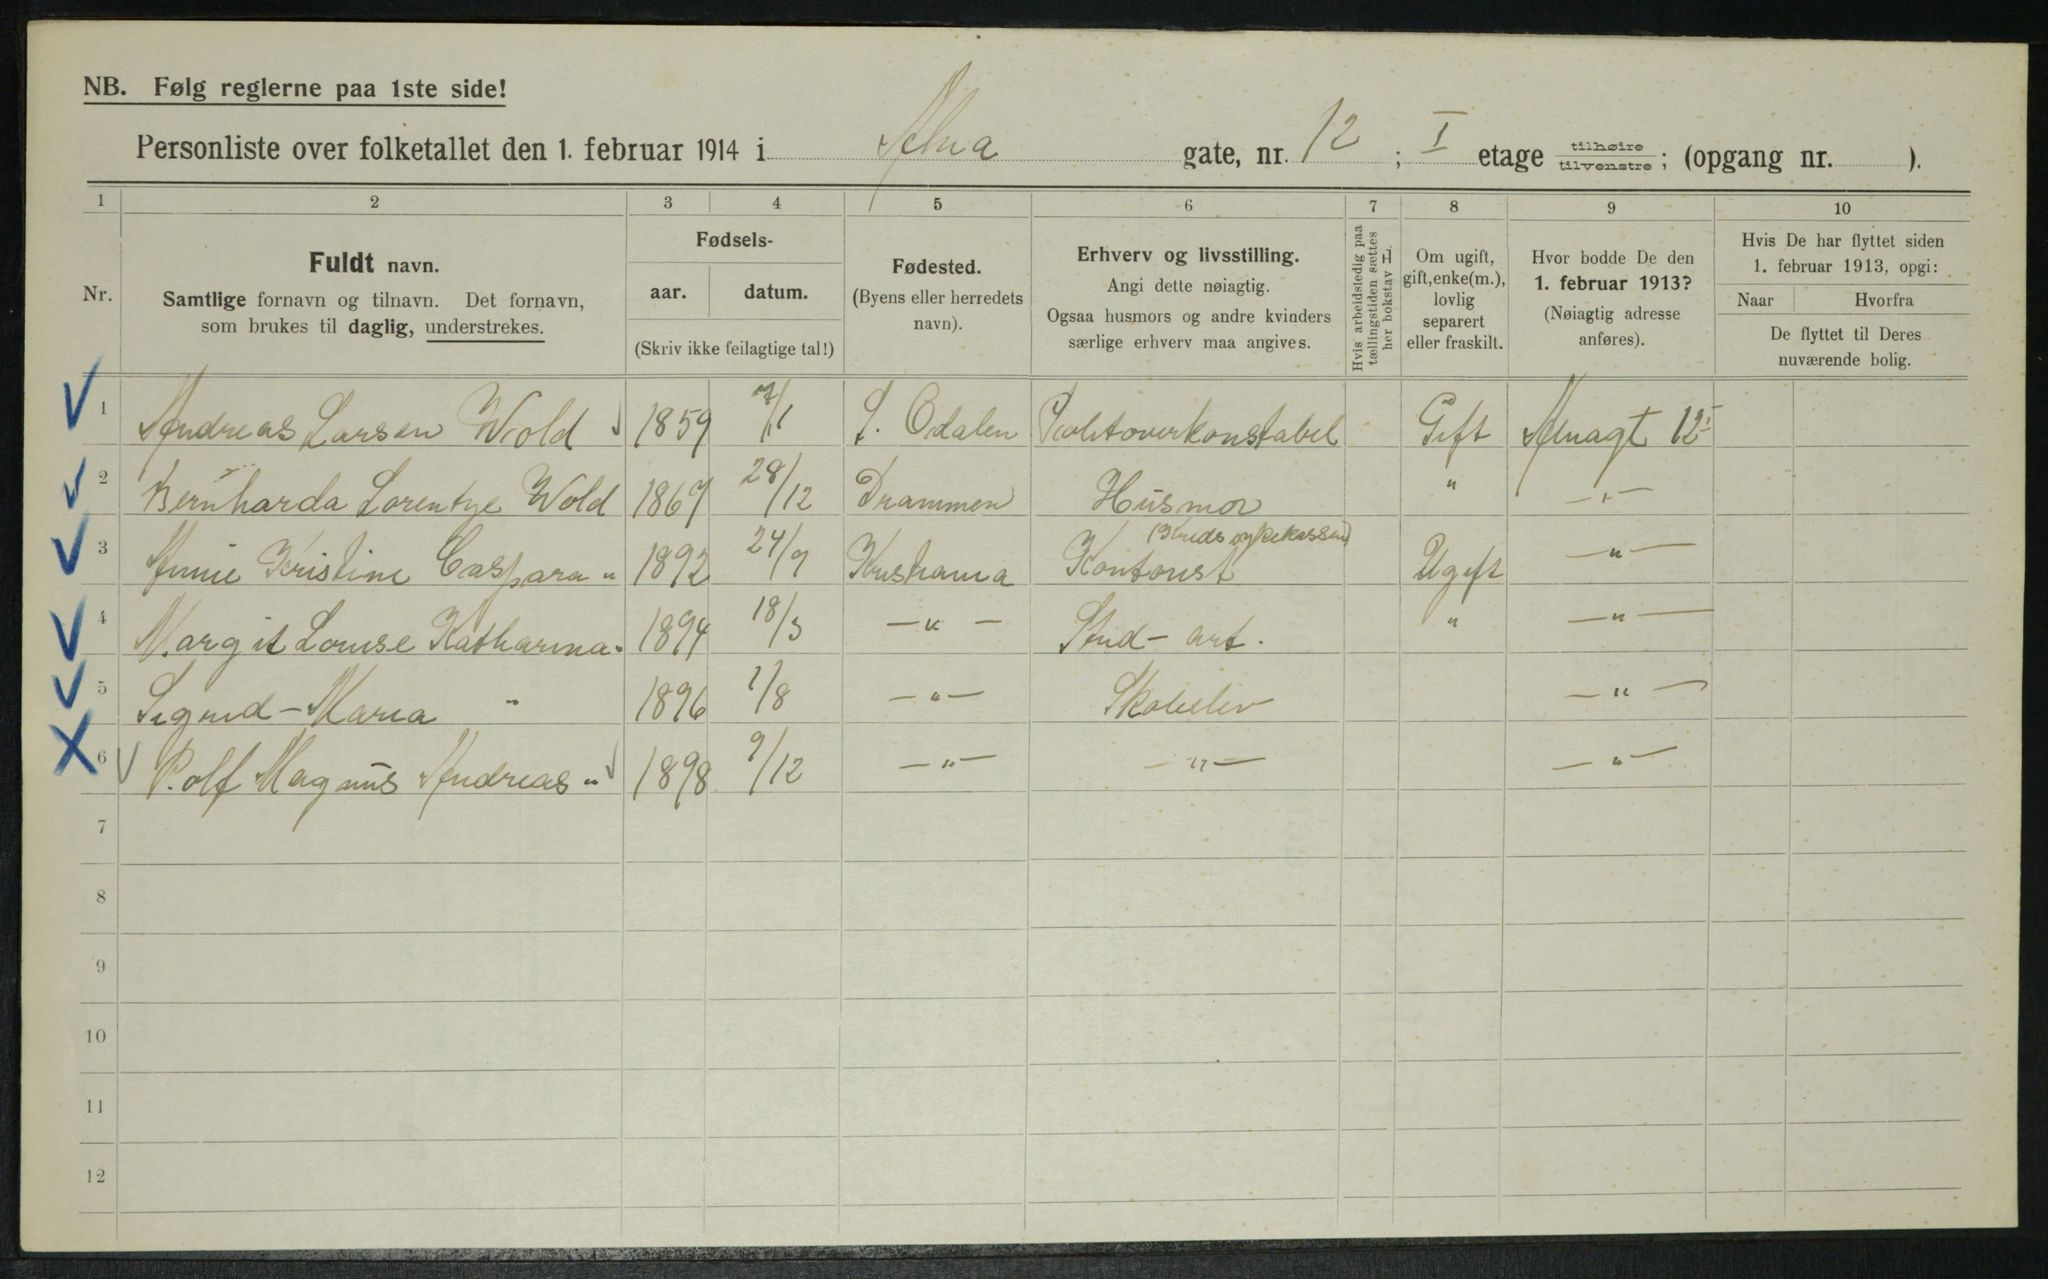 NB. Følg reglerne paa 1ste side!
Personliste over folketallet den 1. februar 1914 i Alna gate, nr. 12 ; I etage tilhøire tilvenstre ; (opgang nr. ).
1 2 3 4 5 6 7 8 9 10
Nr.
Fuldt navn.
Samtlige fornavn og tilnavn. Det fornavn,
som brukes til daglig, understrekes.
Fødsels-
aar. datum.
(Skriv ikke feilagtige tal!)
Fødested.
(Byens eller herredets
navn).
Erhverv og livsstilling.
Angi dette nøiagtig.
Ogsaa husmors og andre kvinders
særlige erhverv maa angives.
Hvis arbeidsledig paa
tællingstiden sættes
her bokstav L.
Om ugift,
gift, enke(m.),
lovlig
separert
eller fraskilt.
Hvor bodde De den
1. februar 1913?
(Nøiagtig adresse
anføres).
Hvis De har flyttet siden
1. februar 1913, opgi:
Naar Hvorfra
De flyttet til Deres
nuværende bolig.
1 Andreas Larsen Wold 1859 7/1 S. Odalen Politoverkonstabel Gift Alnagt 12 I
2 Bernharda Lorentze Wold 1867 28/12 Drammen Husmor " —"—
3 Annie Kristine Caspara " 1892 24/9 Kristiania Kontorist Ugift —"—
4 Margit Louise Katharina " 1894 18/3 —"— Stud-art. " —"—
5 Sigrid-Maria " 1896 1/8 —"— Skoleelev —"—
6 Rolf Magnus Andreas " 1898 9/12 —"— —"— —"—
7
8
9
10
11
12